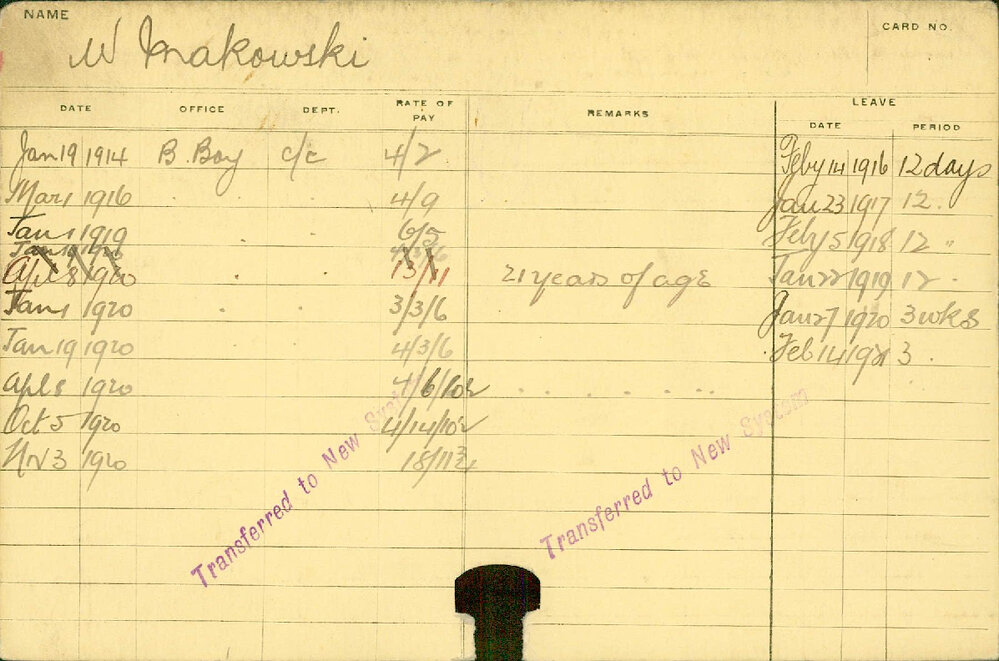 NAME
CARD NO.
W Makowski
DATE OFFICE DEPT. RATE OF PAY REMARKS LEAVE
DATE PERIOD
Jan 19 1914 B. Boy c/c 4/2 Feby 14 1916 12 days
Mar 1 1916 . . 4/9 Jan 23 1917 12 .
Jan 1 1919 6/5 Feby 5 1918 12 "
Apl 8 1920 . . 13/11 21 years of age Jan 22 1919 12 .
Jan 1 1920 . . 3/3/6 Jan 27 1920 3 wks
Jan 19 1920 4/3/6 Feb 14 1921 3 .
Apl 8 1920 4/6/10½ . . . . . ..
Oct 5 1920 4/14/10½
Nov 3 1920 18/11¾
Transferred to New System
Transferred to New System